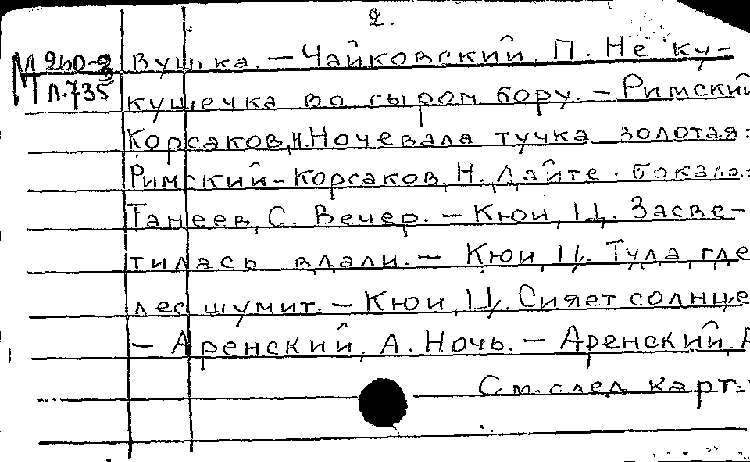 2.
М 260-2 вушка. – Чайковский, П. Не ку-
П.735 кушечка во сыром бору. – Римский
Корсаков, Н. Ночевала тучка золотая:
Римский-Корсаков, Н. Дайте бокалы:
Танеев, С. Вечер. – Кюи, Ц. Засве-
тилась вдали. – Кюи, Ц. Туда, где
лес шумит. – Кюи, Ц. Сияет солнце
– Аренский, А. Ночь. – Аренский, А
См. след. карт.